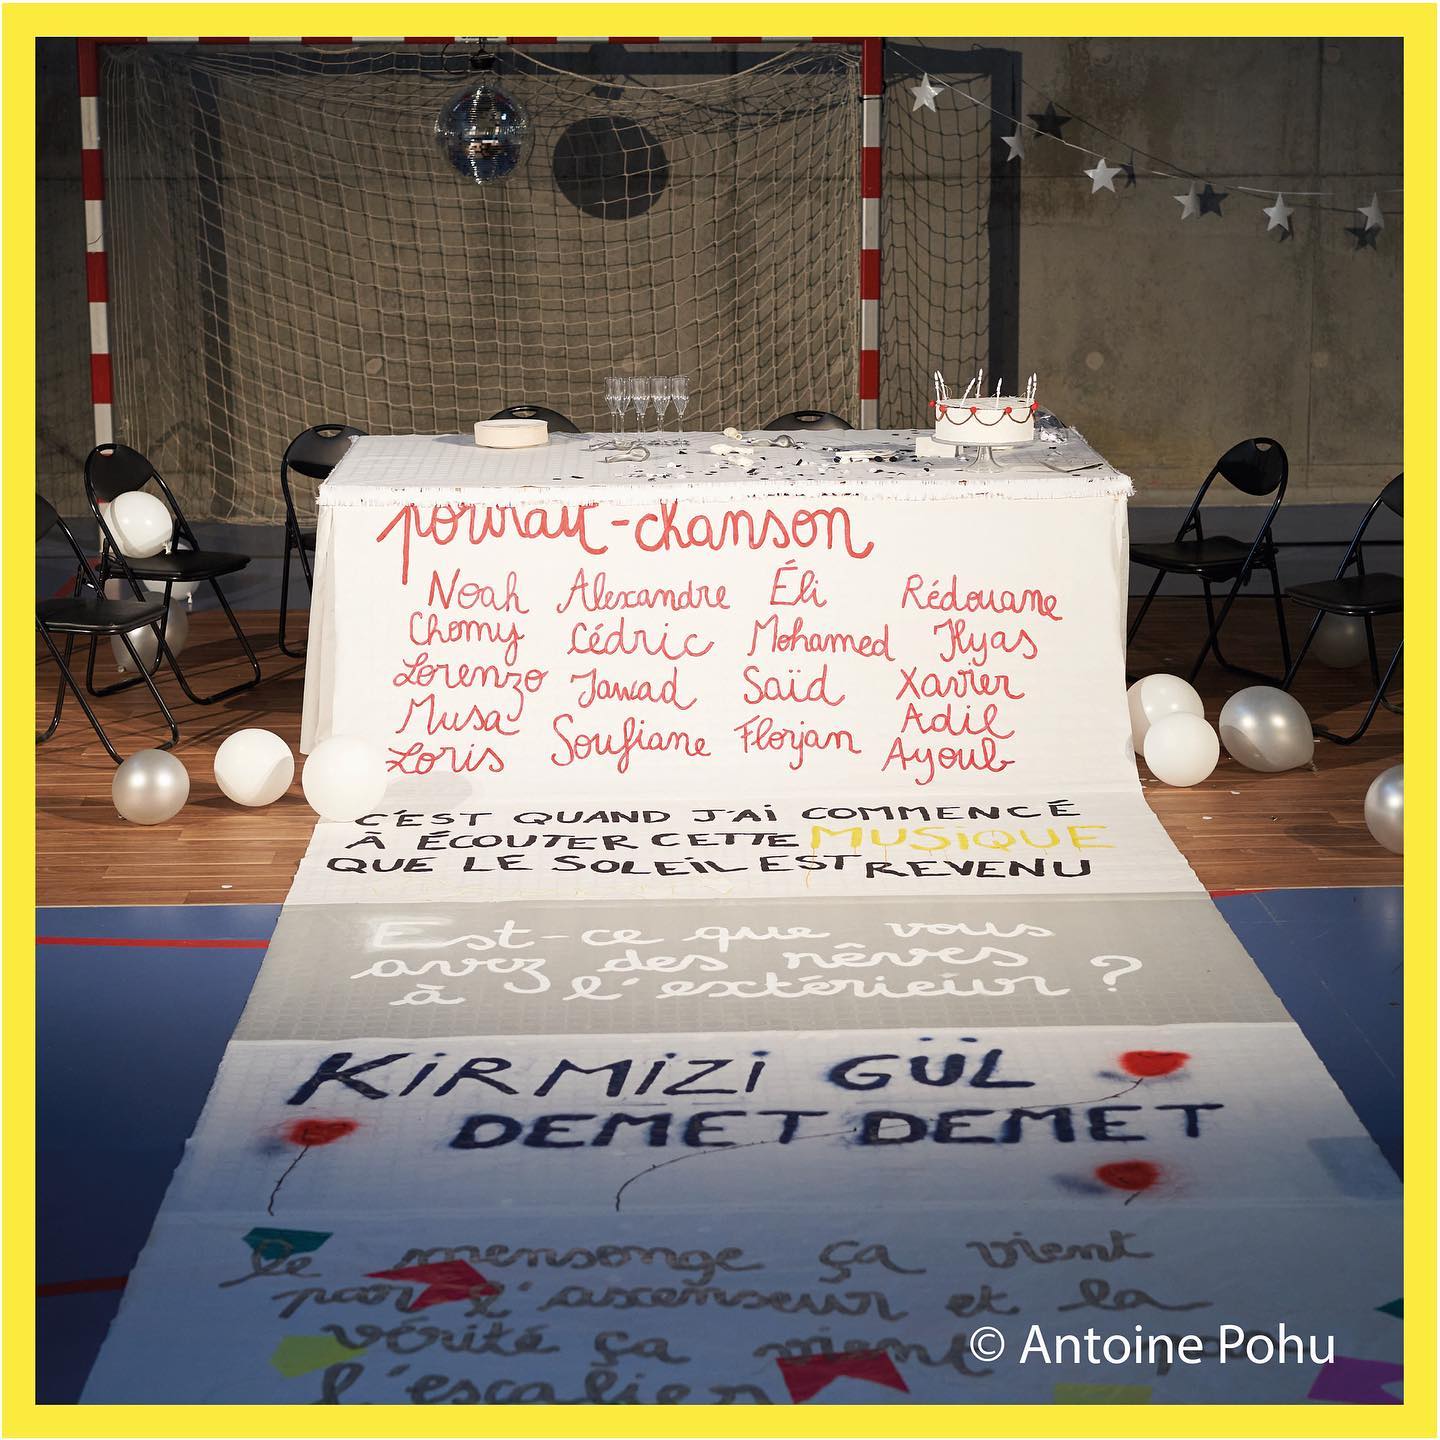 portrait-chanson
Noah Alexandre Éli Rédouane
Chomy Cédric Mohamed Ilyas
Lorenzo Jawad Saïd Xavier
Musa Soufiane Florjan Adil
Loris Ayoub
C'EST QUAND J'AI COMMENCÉ
À ÉCOUTER CETTE MUSIQUE
QUE LE SOLEIL EST REVENU
Est-ce que vous
avez des rêves
à l'extérieur ?
KIRMIZI GÜL
DEMET DEMET
le mensonge ça vient
par l'ascenseur et la
vérité ça vient par
l'escalier
© Antoine Pohu